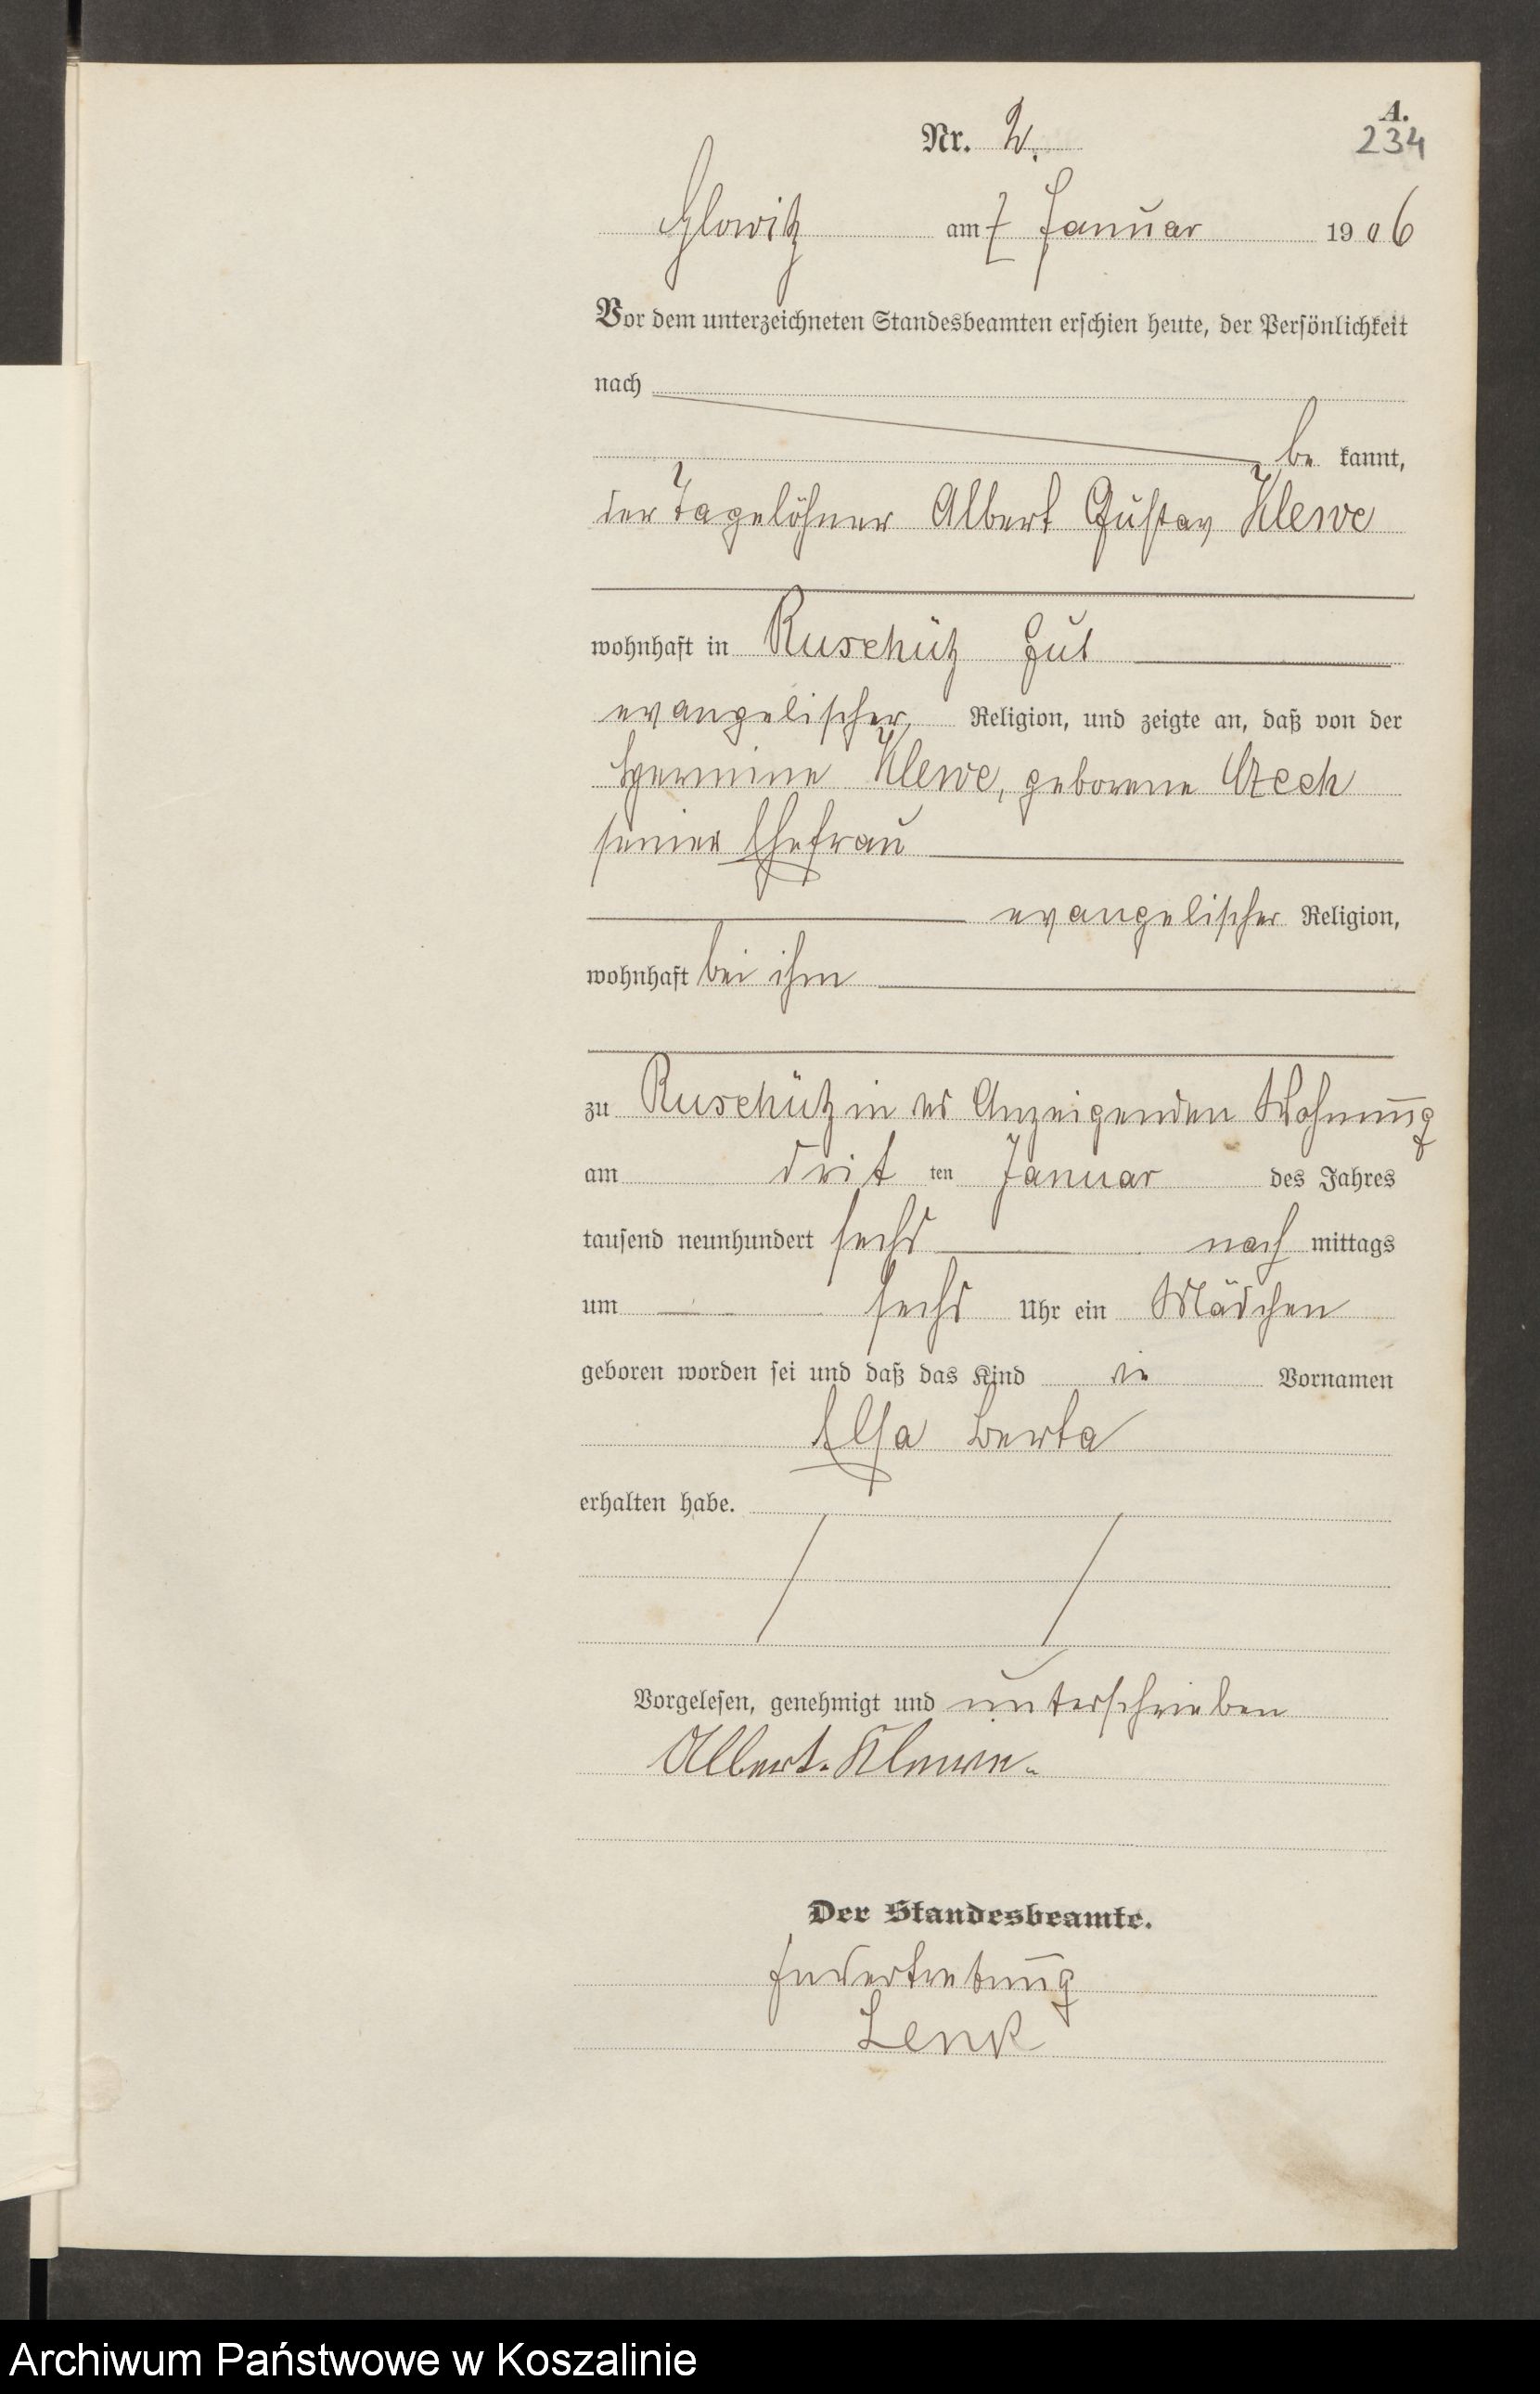 A.
Nr. 2.
234
Glowitz am 7 Januar 1906
Vor dem unterzeichneten Standesbeamten erschien heute, der Persönlichkeit
nach
be kannt,
der Tagelöhner Albert Gustav Klewe
wohnhaft in Ruschütz Gut
evangelischer Religion, und zeigte an, daß von der
Hermine Klewe, geborene Czech
seiner Ehefrau
evangelischer Religion,
wohnhaft bei ihm
zu Ruschütz in des Anzeigenden Wohnung
am dritten Januar des Jahres
tausend neunhundert sechs nachmittags
um sechs Uhr ein Mädchen
geboren worden sei und daß das Kind die Vornamen
Elsa Berta
erhalten habe.
Vorgelesen, genehmigt und unterschrieben
Albert. Klewe.
Der Standesbeamte.
In Vertretung
Lenk
Archiwum Państwowe w Koszalinie